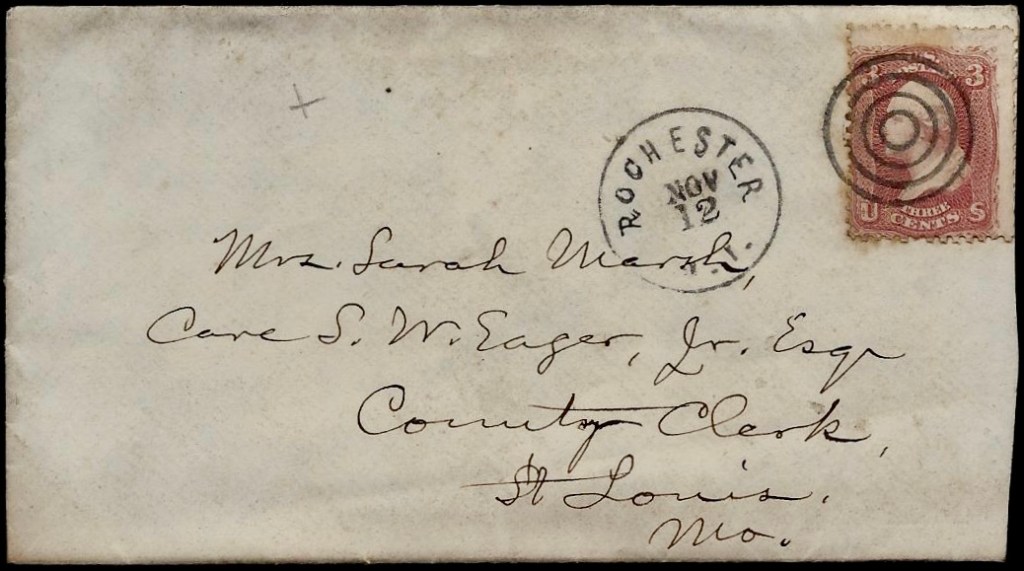 3
U THREE CENTS S
ROCHESTER
NOV
12
N.Y.
Mrs. Sarah Marsh,
Care S. W. Eager, Jr. Esqr
County Clerk,
St Louis.
Mo.